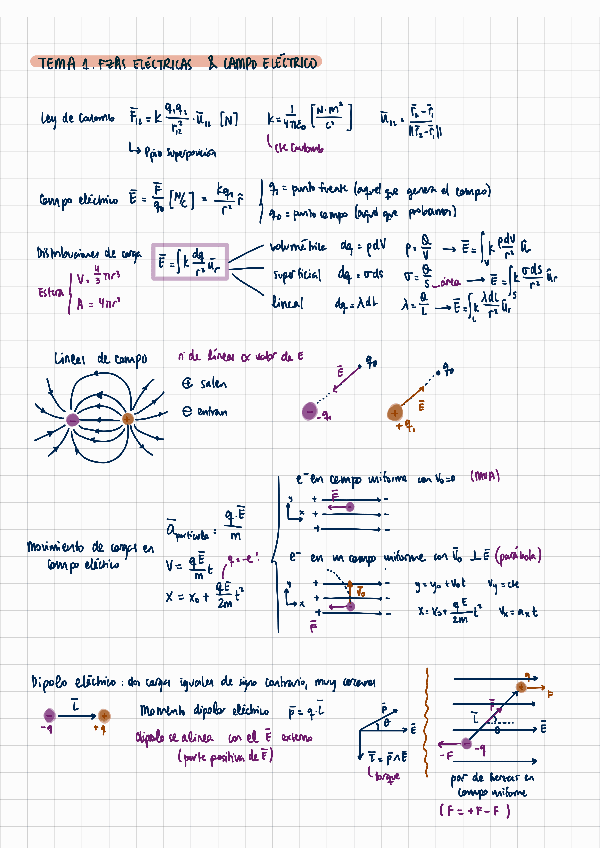 TEMA 1. FZAS ELÉCTRICAS & CAMPO ELÉCTRICO
Ley de Coulomb F̄₁₂ = k q₁q₂/r₁₂² · ū₁₂ [N] k = 1/4πε₀ [N·m²/C²] ū₁₂ = r̄₂ - r̄₁/|r̄₂ - r̄₁|
↳ Ppio superposición
↳ cte Coulomb
Campo eléctrico Ē = F̄/q₀ [N/C] = kq₁/r² r̂
q₁ = punto fuente (aquel que genera el campo)
q₀ = punto campo (aquel que probamos)
Distribuciones de carga Ē = ∫ k dq/r² ūr
volumétrica dq = ρdV ρ = Q/V → Ē = ∫v k ρdV/r² ūr
superficial dq = σds σ = Q/S área → Ē = ∫s k σds/r² ūr
lineal dq = λdl λ = Q/L → Ē = ∫L k λdl/r² ūr
Esfera
V = 4/3 πr³
A = 4πr²
Líneas de campo
nº de líneas ∝ valor de E
⊕ salen
⊖ entran
- +
Ē q₀
- -q₁
q₀ Ē
+ +q₁
Movimiento de cargas en
campo eléctrico
ā partícula = q·Ē/m
V = qĒ/m t
q = -e⁻!
X = x₀ + qE/2m t²
e⁻ en campo uniforme con V₀=0 (MRUA)
y x F̄ + -
+ -
+ -
e⁻ en un campo uniforme con v̄₀ ⊥ Ē (parábola)
y x + -
+ v̄₀ -
+ -
F̄
y = y₀ + V₀t Vy = cte
X = x₀ + qE/2m t² Vx = aₓt
Dipolo eléctrico: dos cargas iguales de signo contrario, muy cercanas
- L̄ +
-q +q
Momento dipolo eléctrico p̄ = q·L̄
Dipolo se alinea con el Ē externo
(parte positiva de Ē)
p̄ θ Ē
τ̄ = p̄ ∧ Ē
↳ torque
q + F
p̄
L̄ θ Ē
-F - -q
par de fuerzas en
campo uniforme
(F = +F - F)